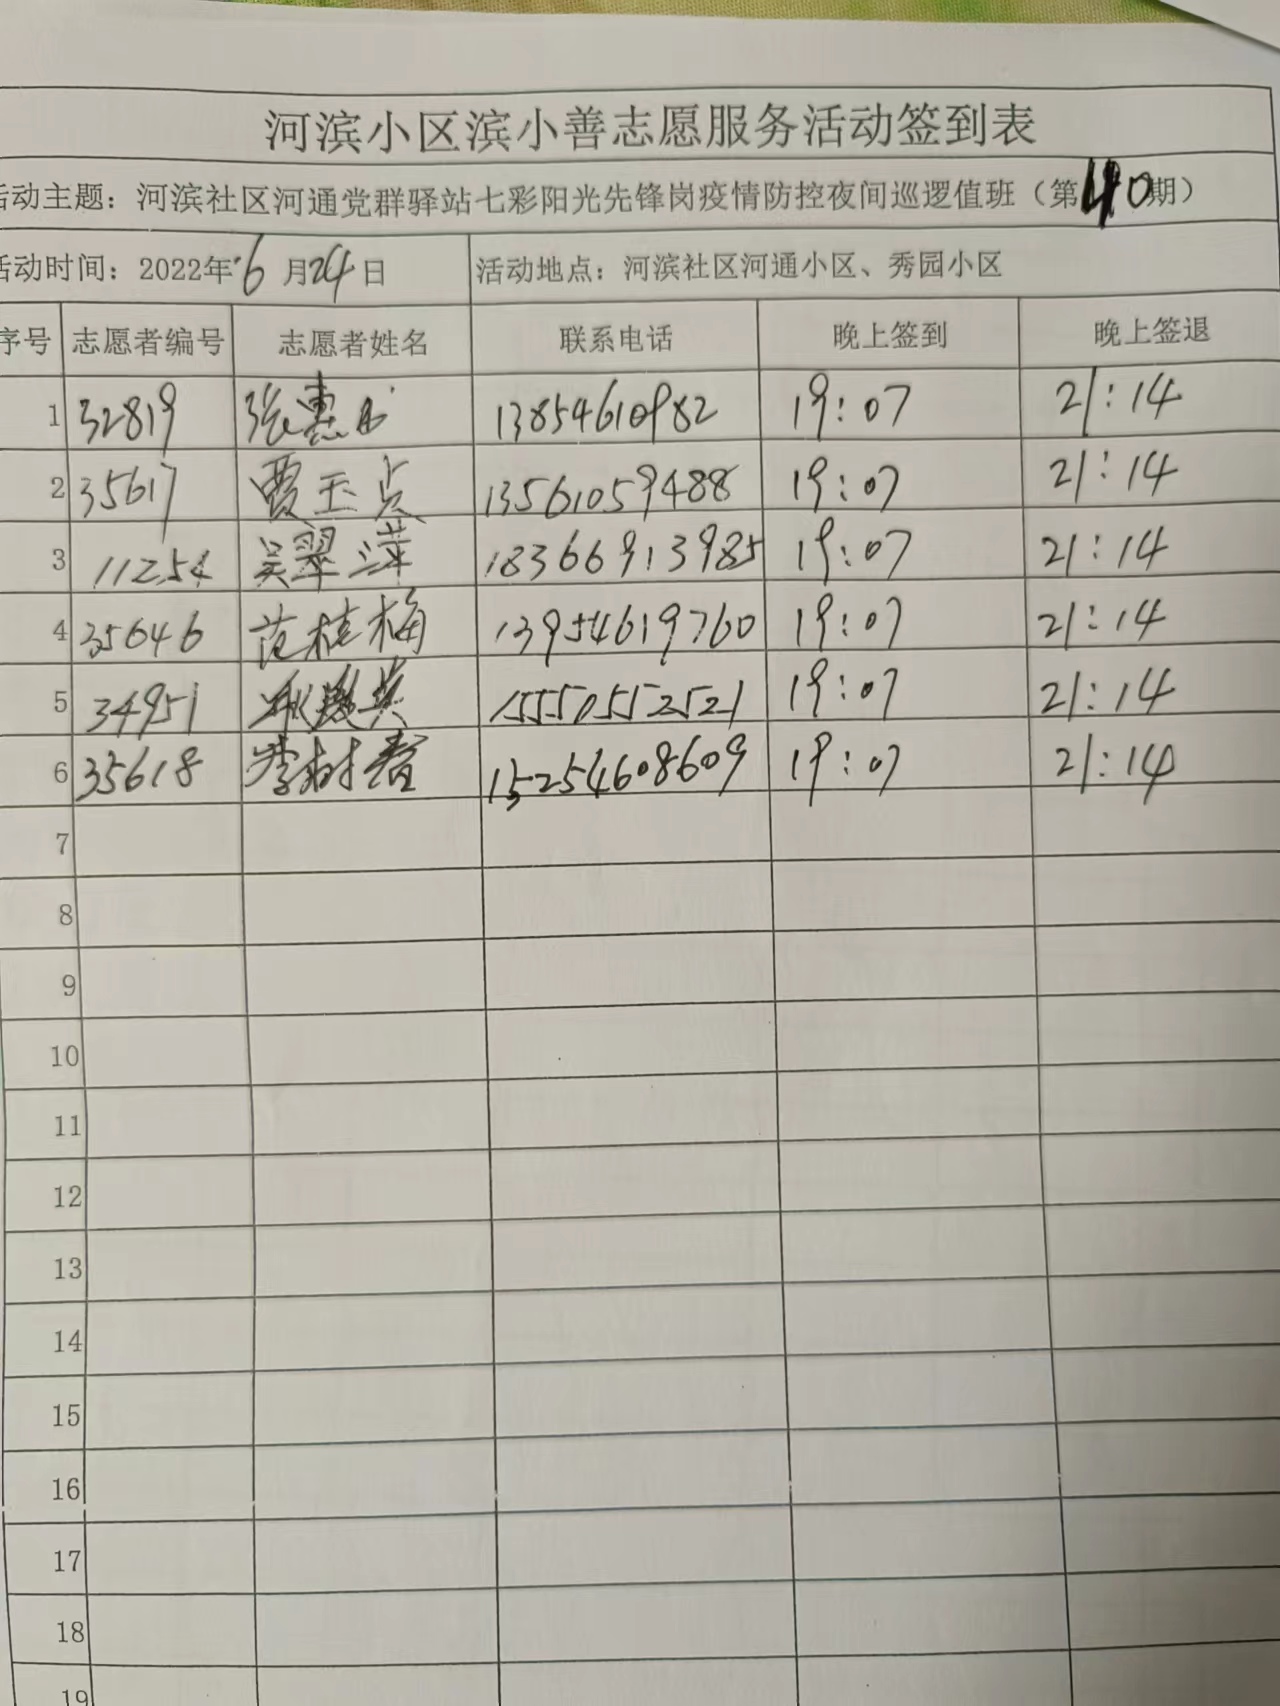 河滨小区滨小善志愿服务活动签到表
活动主题：河滨社区河通党群驿站七彩阳光先锋岗疫情防控夜间巡逻值班（第40期）
活动时间：2022年6月24日 活动地点：河滨社区河通小区、秀园小区
序号 志愿者编号 志愿者姓名 联系电话 晚上签到 晚上签退
1 32819 张惠 13854610982 19:07 21:14
2 35617 贾玉贞 13561059488 19:07 21:14
3 11254 吴翠萍 18366913985 19:07 21:14
4 35646 范桂梅 13954619760 19:07 21:14
5 34951 英 15550552521 19:07 21:14
6 35618 李树春 15254608609 19:07 21:14
7
8
9
10
11
12
13
14
15
16
17
18
19